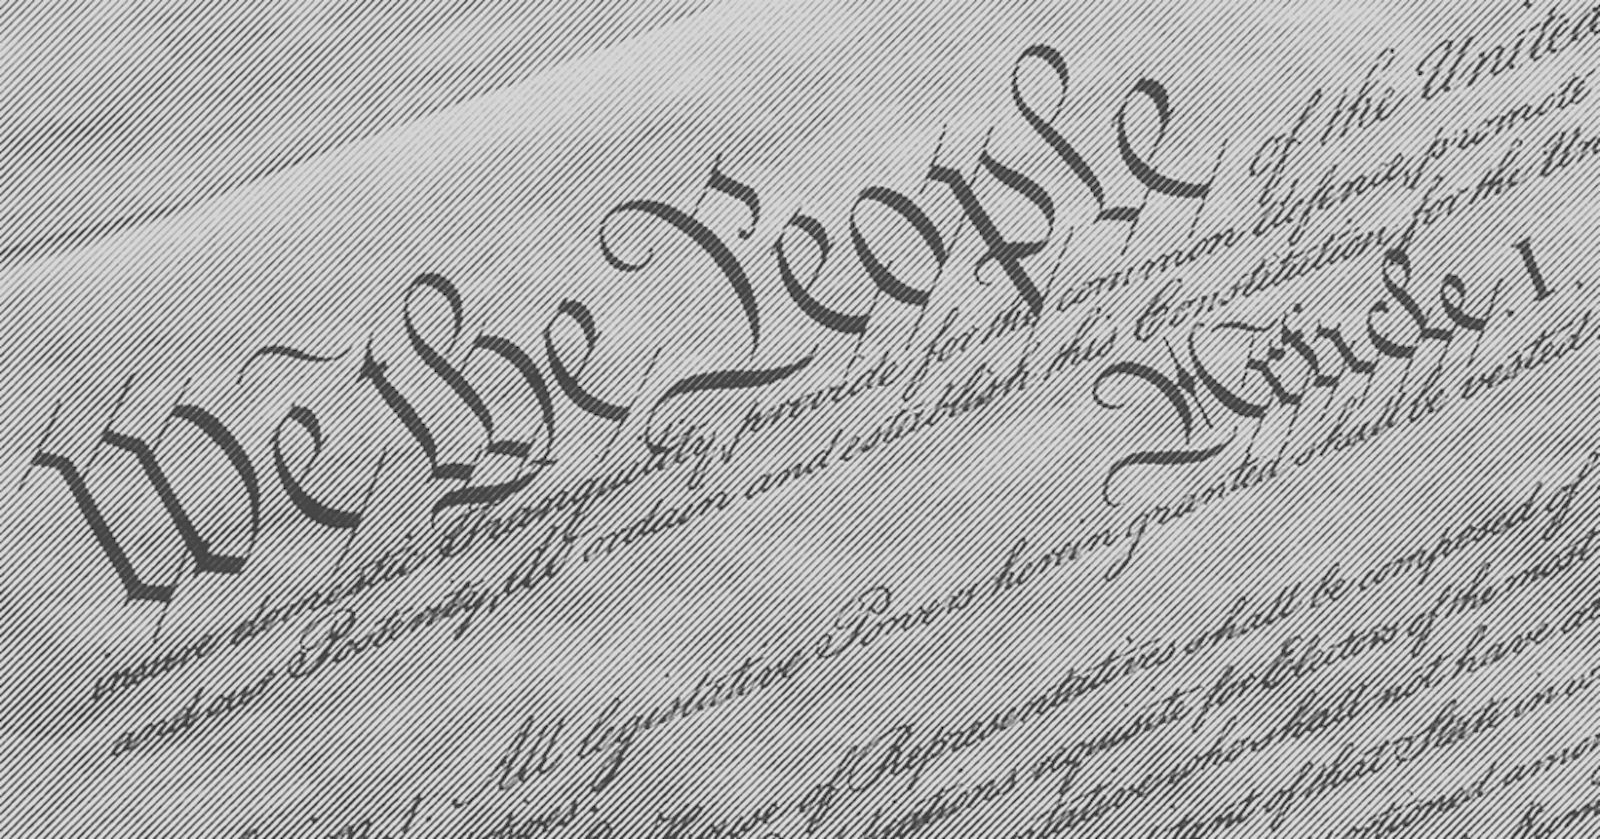 We the People of the United
insure domestic Tranquility, provide for the common defence, promote
and our Posterity, do ordain and establish this Constitution for the Un
Article. I.
All legislative Powers herein granted shall be vested
House of Representatives shall be composed of
requisite for Electors of the most
who shall not have
of that State in